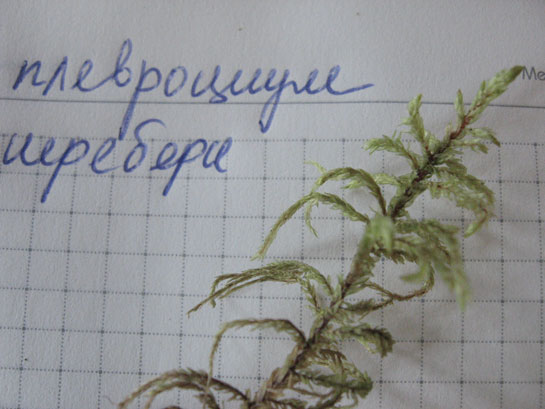 плевроциум
шребери
Ме